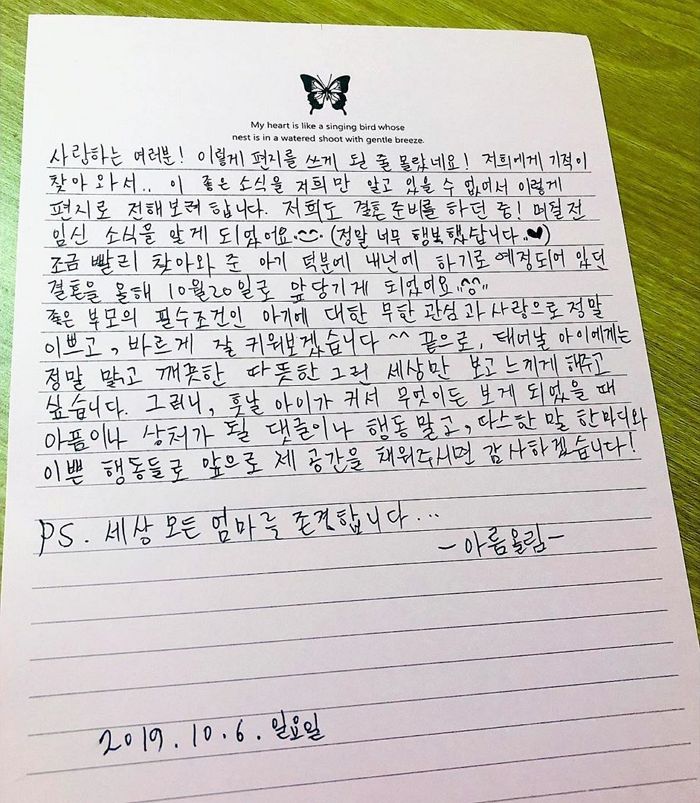 My heart is like a singing bird whose
nest is in a watered shoot with gentle breeze.
사랑하는 여러분! 이렇게 편지를 쓰게 될 줄 몰랐네요! 저희에게 기적이
찾아와서.. 이 좋은 소식을 저희만 알고 있을 수 없어서 이렇게
편지로 전해보려 합니다. 저희도 결혼준비를 하던 중! 며칠전
임신 소식을 알게 되었어요. (정말 너무 행복했답니다..♥)
조금 빨리 찾아와 준 아기 덕분에 내년에 하기로 예정되어 있던
결혼을 올해 10월20일로 앞당기게 되었어요
좋은 부모의 필수조건인 아기에 대한 무한 관심과 사랑으로 정말
이쁘고, 바르게 잘 키워보겠습니다 ^^ 끝으로, 태어날 아이에게는
정말 맑고 깨끗한 따뜻한 그런 세상만 보고 느끼게 해주고
싶습니다. 그러니, 훗날 아이가 커서 무엇이든 보게 되었을 때
아픔이나 상처가 될 댓글이나 행동 말고, 따스한 말 한마디와
이쁜 행동들로 앞으로 제 공간을 채워주시면 감사하겠습니다!
PS. 세상 모든 엄마를 존경합니다...
-아름올림-
2019.10.6.일요일